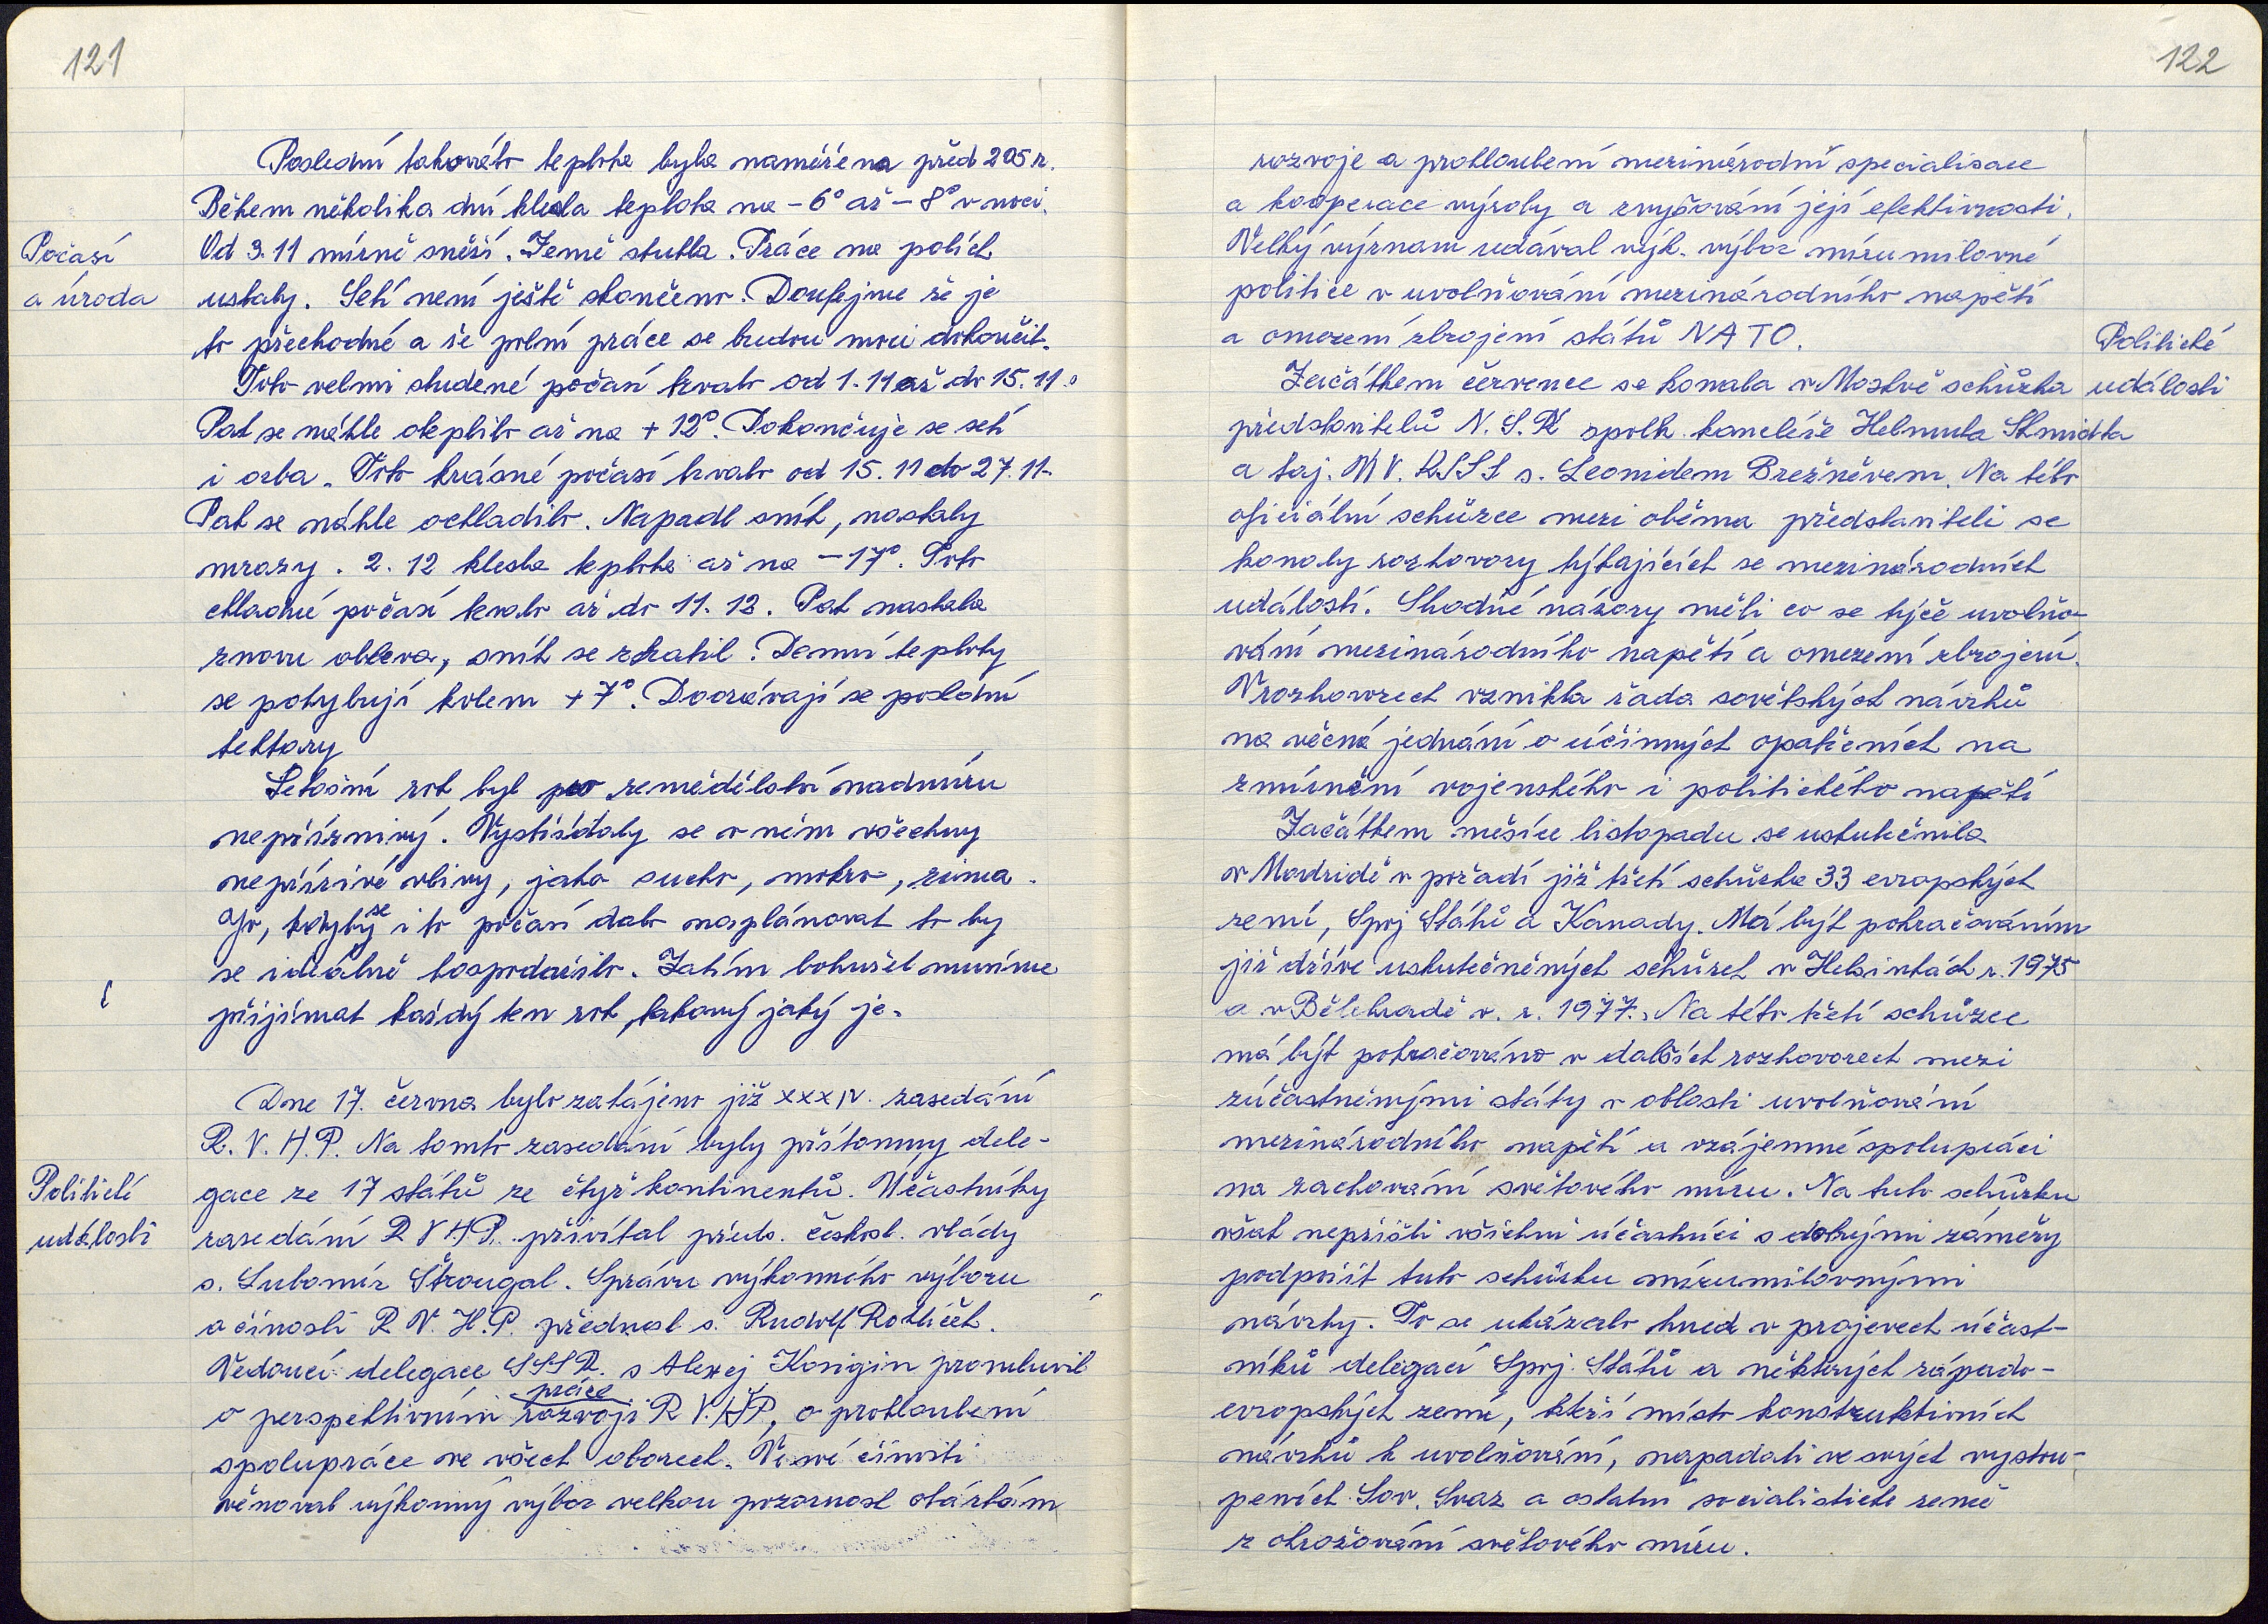 121
Poslední takováto teplota byla naměřena před 205 r.
Během několika dní klesla teplota na - 6° až - 8° v noci.
Počasí
a úroda
Od 3. 11 mírně sněží. Země ztuhla. Práce na polích
ustaly. Setí není ještě skončeno. Doufejme že je
to přechodné a že polní práce se budou moci dokončit.
Toto velmi studené počasí trvalo od 1. 11 až do 15. 11.
Pak se náhle oteplilo až na + 12°. Dokončuje se setí
i orba. Toto krásné počasí trvalo od 15. 11 do 27. 11.
Pak se náhle ochladilo. Napadl sníh, nastaly
mrazy. 2. 12 klesla teplota až na - 17°. Toto
chladné počasí trvalo až do 11. 12. Pak nastala
znovu obleva, sníh se ztratil. Denní teploty
se pohybují kolem + 7°. Doorávají se poslední
hektary
Letošní rok byl pro zemědělství nadmíru
nepříznivý. Vystřídaly se v něm všechny
nepřízivé vlivy, jako sucho, mokro, zima.
Jo, kdyby se i to počasí dalo naplánovat to by
se ideálně hospodařilo. Zatím bohužel musíme
přijímat každý ten rok, takový jaký je.
Dne 17. června bylo zahájeno již XXXIV. zasedání
R. V. H. P. Na tomto zasedání byly přítomny dele-
Politické
události
gace ze 17 států ze čtyř kontinentů. Účastníky
zasedání R V H P. přivítal předs. českosl. vlády
s. Lubomír Štrougal. Správu výkonného výboru
o činosti R. V. H. P. přednesl s. Rudolf Rohlíček.
Vedoucí delegace SSSR. s Alexej Kosigin promluvil
o perspektivním práce rozvoji R V. H P, o prohloubení
spolupráce ve všech oborech. Ve své činosti
věnoval výkonný výbor velkou pozornost otázkám
122
rozvoje a prohloubení mezinárodní specialisace
a kooperace výroby a zvyšování její efektivnosti.
Velký význam udával výk. výbor mírumilovné
politice v uvolňování mezinárodního napětí
a omezení zbrojení států NATO.
Politické
události
Začátkem července se konala v Moskvě schůzka
představitelů N. S. R spolk. kancléře Helmuta Shmidta
a taj. ÚV. KSSS s. Leonidem Brežněvem. Na této
oficiální schůzce mezi oběma představiteli se
konaly rozhovory týkajících se mezinárodních
událostí. Shodné názory měli co se týče uvolňo-
vání mezinárodního napětí a omezení zbrojení.
V rozhovorech vznikla řada sovětských návrhů
na věcná jednání o účinných opatřeních na
zmírnění vojenského i politického napětí
Začátkem měsíce listopadu se uskutečnila
v Madridě v pořadí již třetí schůzka 33 evropských
zemí, Spoj Států a Kanady. Má být pokračováním
již dříve uskutečněných schůzek v Helsinkách r. 1975
a v Bělehradě v. r. 1977. Na této třetí schůzce
má být pokračováno v dalších rozhovorech mezi
zúčastněnými státy v oblasti uvolňování
mezinárodního napětí a vzájemné spolupráci
na zachování světového míru. Na tuto schůzku
však nepřišli všichni účastníci s dobrými záměry
podpořit tuto schůzku mírumilovnými
návrhy. To se ukázalo hned v projevech účast-
níků delegací Spoj. Států a některých západo-
evropských zemí, kteří místo konstruktivních
návrhů k uvolňování, napadali ve svých vystou-
peních Sov. Svaz a ostatní socialistické země
z ohrožování světového míru.